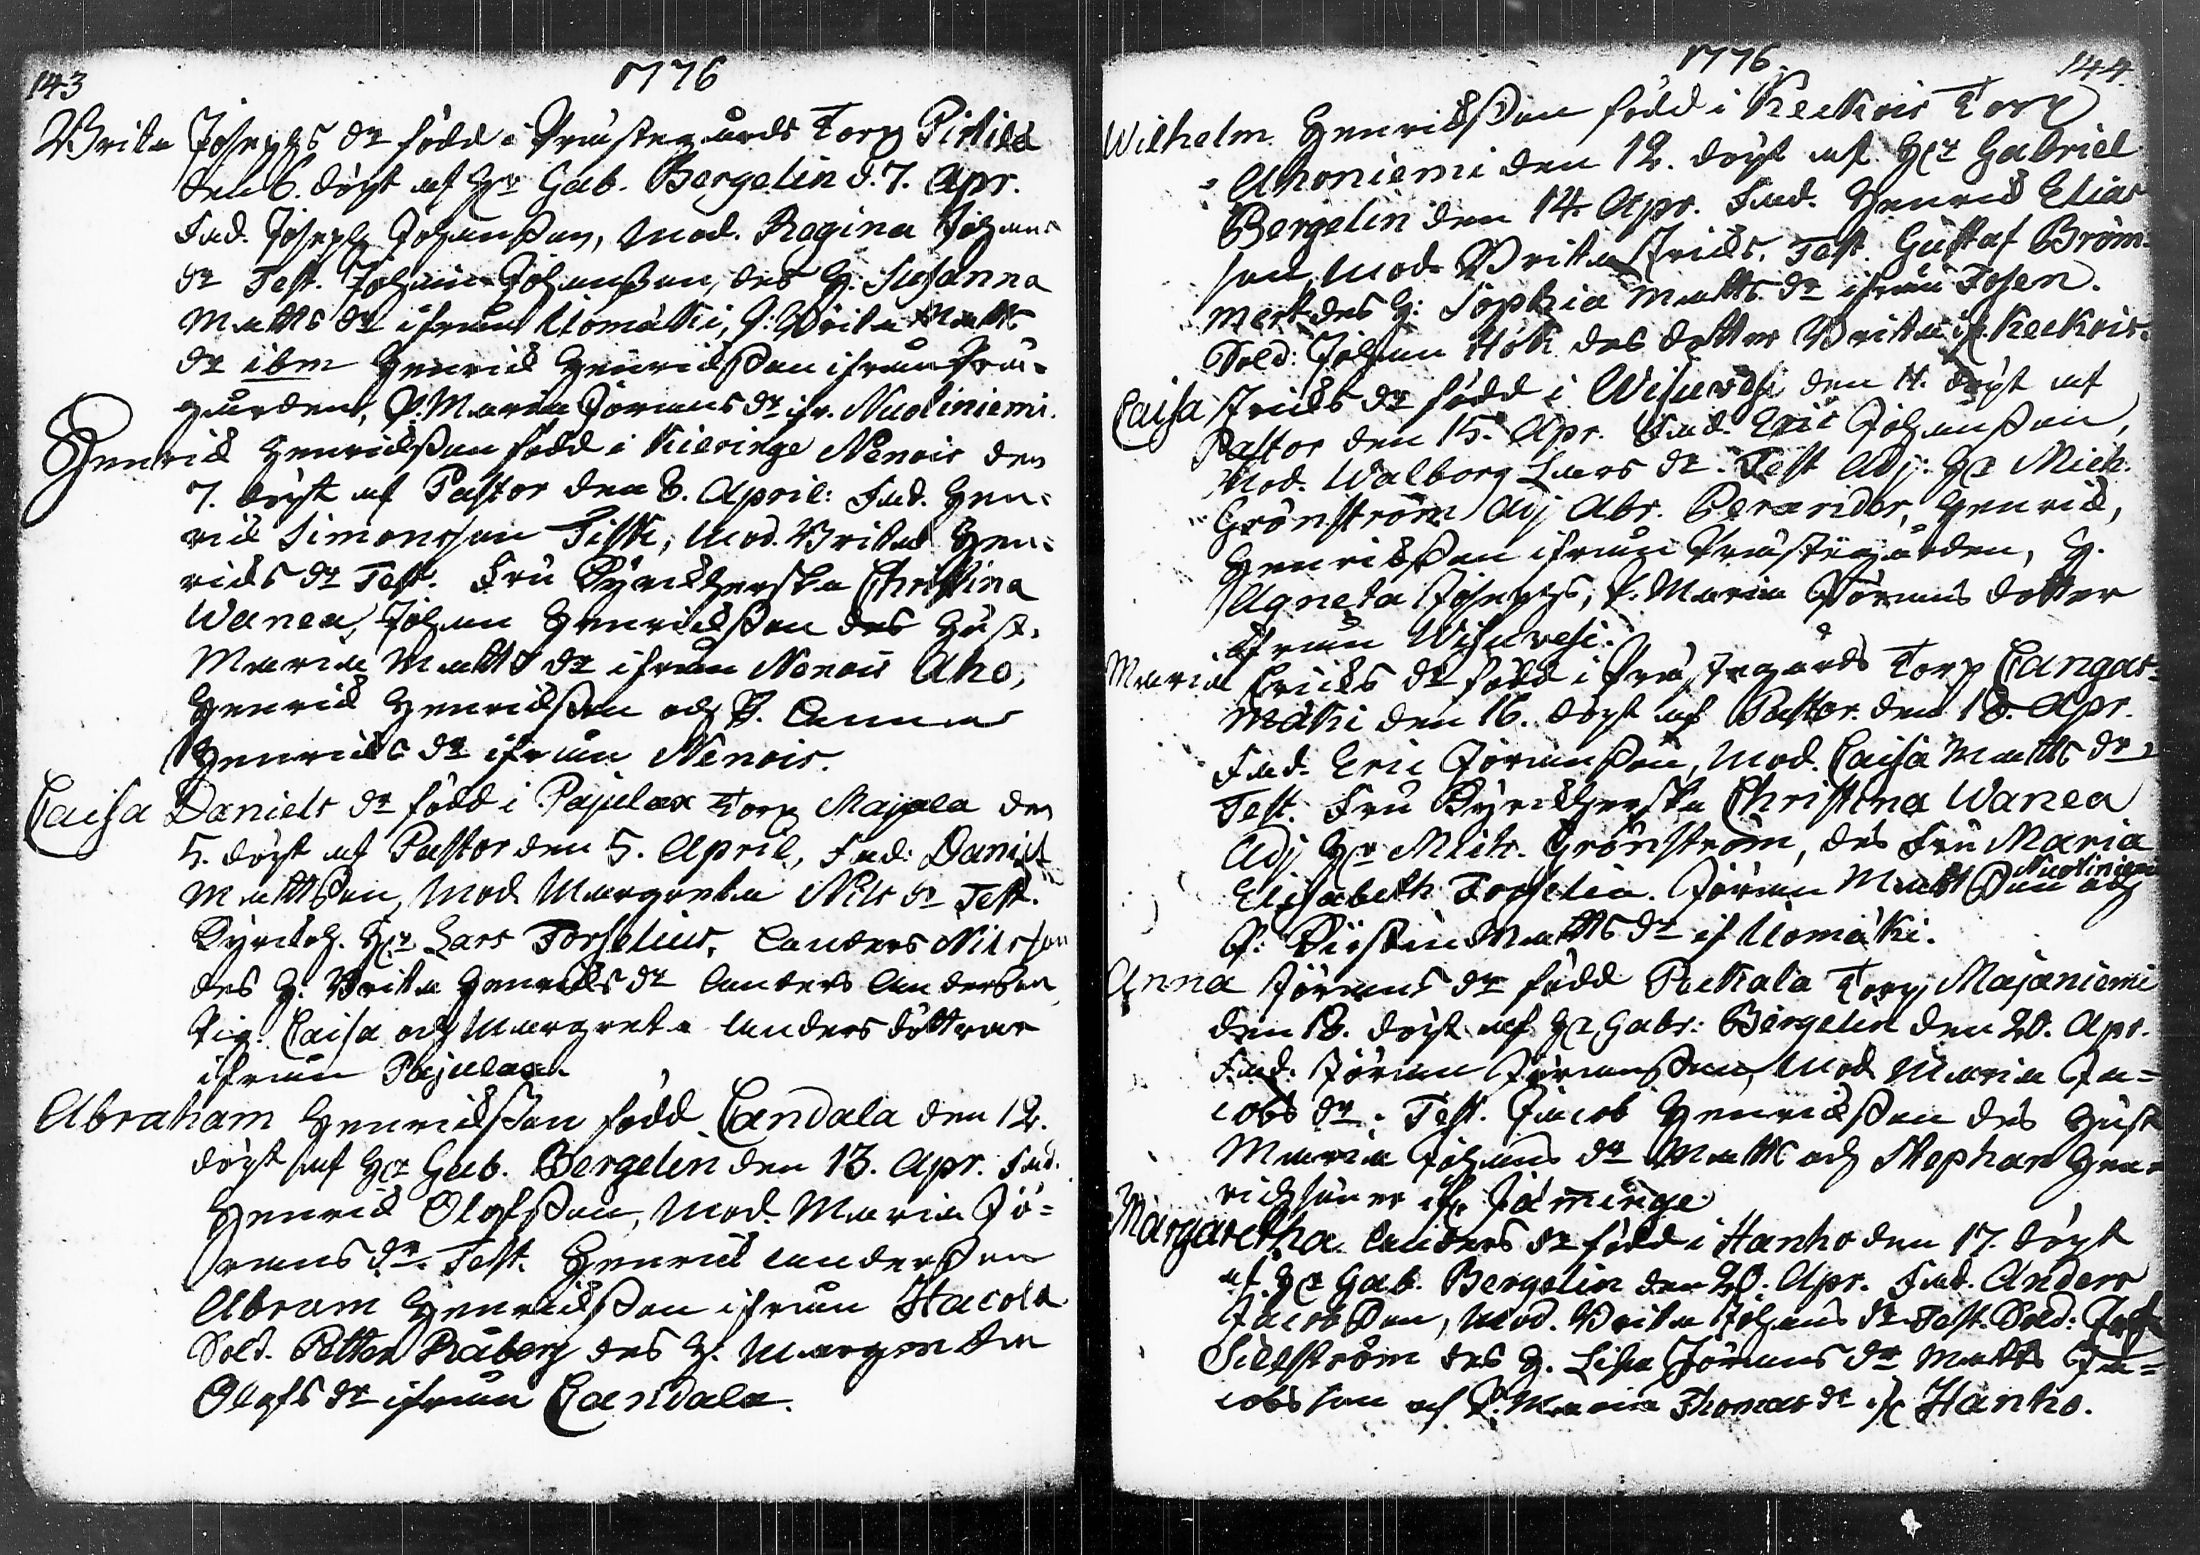 143
1776
Brita Josephs dr född i Prästegårds Torp Pirkilä
den 6. döpt af Hr Gab. Bergelin d. 7. Apr.
Fad. Joseph Johansson, Mod. Regina Johans
dr Test. Johan Johansson, des H. Susanna
Matts dr ifrån Uomäki, P: Brita Matts
dr ibm Henrik Henriksson ifrån Prä-
gården, P. Maria Jörans dr ifr. Nuoliniemi.
Henrik Henriksson född i Kieringe Nenois den
7. döpt af Pastor den 8. April: Fad. Hen-
rik Simonsson Fisk, Mod. Brita Hen-
riks dr Test. Fru Kyrkherska Christina
Wanea, Johan Henriksson des Hust.
Maria Matts dr ifrån Nenois Aho,
Henrik Henriksson och P. Anna
Henriks dr ifrån Nenois.
Caisa Daniels dr född i Pajulax Torp Majala den
5. döpt af Pastor den 5. April, Fad: Daniel
Mattsson, Mod Margreta Nils dr Test.
Kyrckoh. Hr Lars Forselius, Anders Nilsson
des H. Brita Henriks dr Anders Andersson
Pig. Caisa och Margreta Anders döttrar
ifrån Pajulax.
Abraham Henriksson född Candala den 12.
döpt af Hr Gab. Bergelin den 13. Apr. Fad.
Henrik Olofsson, Mod. Maria Jö-
rans dr. Test. Henrik Andersson
Abram Henriksson ifrån Hacola
Sold. Petter Råberg des H. Margreta
Olofs dr ifrån Candala.
1776.
144
Wilhelm Henriksson född i Keckois Torp
Ahoniemi den 12. döpt af Hr Gabriel
Bergelin den 14. Apr. Fad. Henrik Elias
son, Mod. Brita Eriks. Test. Gustaf Bröm-
mert des H: Sophia Matts dr ifrån Josen.
Sold: Johan Hök des dotter Brita if. Keckois.
Caisa Eriks dr född i Wisuvesi den 14. döpt af
Pastor den 15. Apr. Fad. Eric Johansson,
Mod. Walborg Lars dr. Test Adj. Hr Mich.
Grönström Adj Abr. Perander, Henrik,
Henriksson ifrån Prästegården, H.
Agneta Josephs, P. Maria Jörans dotter
ifrån Wisuvesi.
Maria Eriks dr född i Prästegårds Torp Cangas-
mäki den 16. döpt af Pastor. den 18. Apr.
Fad. Eric Jöransson, Mod. Caisa Matts dr
Test. Fru Kyrkherska Christina Wanea
Adj Hr Mich. Grönström, des Fru Maria
Elisabeth Forselia. Jöran Mattsson och Nuoliniemi
P: Kirstin Matts dr if Uomäki.
Anna Jörans dr född Peckala Torp Majaniemi
den 18. döpt af Hr Gabr: Bergelin den 20. Apr.
Fad. Jöran Jöransson, Mod Maria Ja-
cobs dr. Test. Jacob Henriksson des Hust
Maria Johans dr Matts och Stephan Hen-
rikssöner ifr Jäminge
Margaretha Anders dr född i Hanho den 17. döpt
af. Hr Gab. Bergelin den 20. Apr. Fad. Anders
Jacobsson, Mod. Brita Johans dr Test. Sold:
Sillström des H. Lisa Jörans dr Matts Ja-
cobsson och P. Maria Thomas dr ifr Hanho.